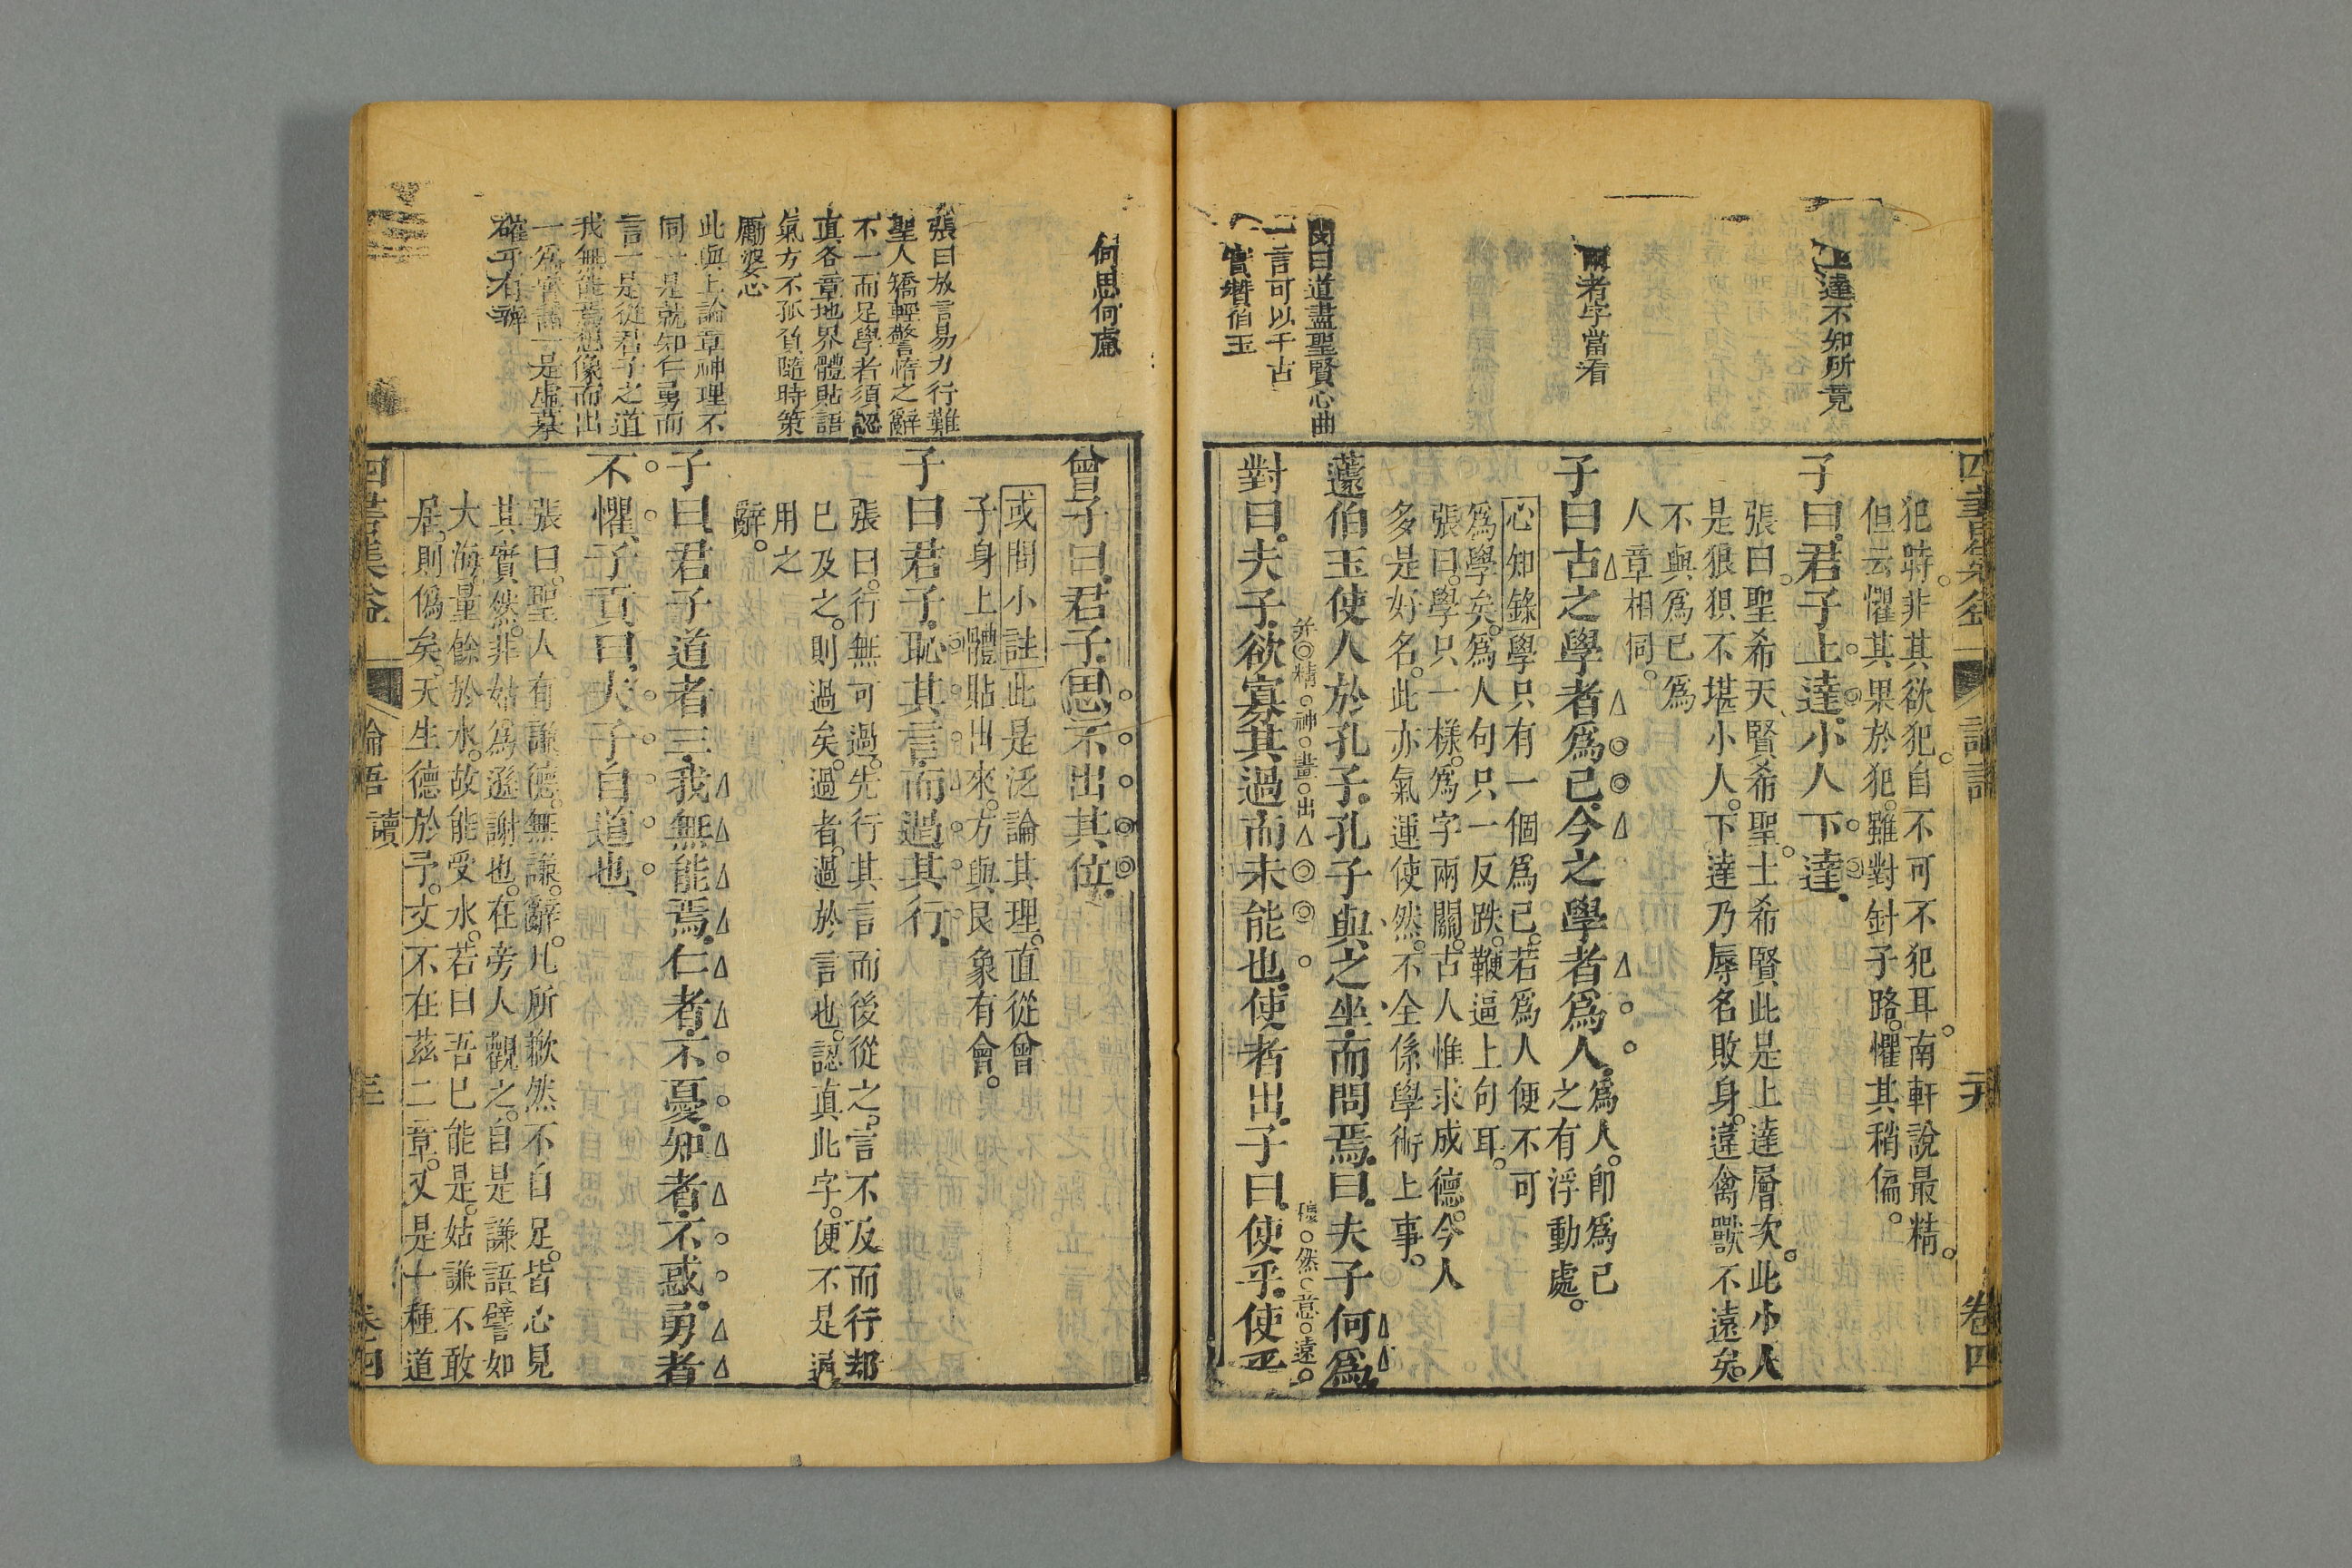 四書
論語
卷四
犯時。非其欲犯。自不可不犯耳。南軒說最精。
但云懼其果於犯。雖對針子路。懼其稍偏。
上達不知所竟
子曰。君子上達。小人下達。
張曰。聖希天。賢希聖。士希賢。此是上達層次。此小人
是狼狽不堪小人。下達乃辱名敗身。違禽獸不遠矣。
不與爲己爲
人章相同。
兩者字當看
子曰。古之學者爲己。今之學者爲人。
爲人。卽爲己
之有浮動處。
心知錄學只有一個爲己。若爲人便不可
爲學矣。爲人句只一反跌。鞭逼上句耳。
張曰。學只一樣。爲字兩關。古人惟求成德。今人
多是好名。此亦氣運使然。不全係學術上事。
曰道盡聖賢心曲
一言可以千古
實贊伯玉
蘧伯玉使人於孔子。孔子與之坐。而問焉。曰。夫子何爲。
并精神畫出
然意遠
對曰。夫子欲寡其過而未能也。使者出。子曰。使乎。使乎
何思何慮
曾子曰。君子思不出其位。
或問小註此是泛論其理。直從曾
子身上體貼出來。方與艮象有會。
張曰放言易力行難
聖人矯輕警惰之辭
不一而足學者須認
眞各章地界體貼語
氣方不孤負隨時策
勵婆心
子曰。君子。恥其言。而過其行。
張曰。行無可過。先行其言而後從之。言不及而行却
已及之。則過矣。過者。過於言也。認眞此字。便不是過
用之
辭。
此與上論章神理不
同一是就知仁勇而
言一是從君子之道
我無能焉想像而出
一爲實一是虛摹
確乎有辨
子曰。君子道者三。我無能焉。仁者不憂。知者不惑。勇者
不懼。子貢曰。夫子自道也。
張曰。聖人有謙德。無謙辭。凡所歉然不自足。皆心見
其實然。非姑爲遜謝也。在旁人觀之。自是謙語。譬如
大海。量餘於水。故能受水。若曰吾已能是。姑謙不敢
居。則僞矣。天生德於予。文不在茲二章。又是十種道
四書集益
論語讀
卷四